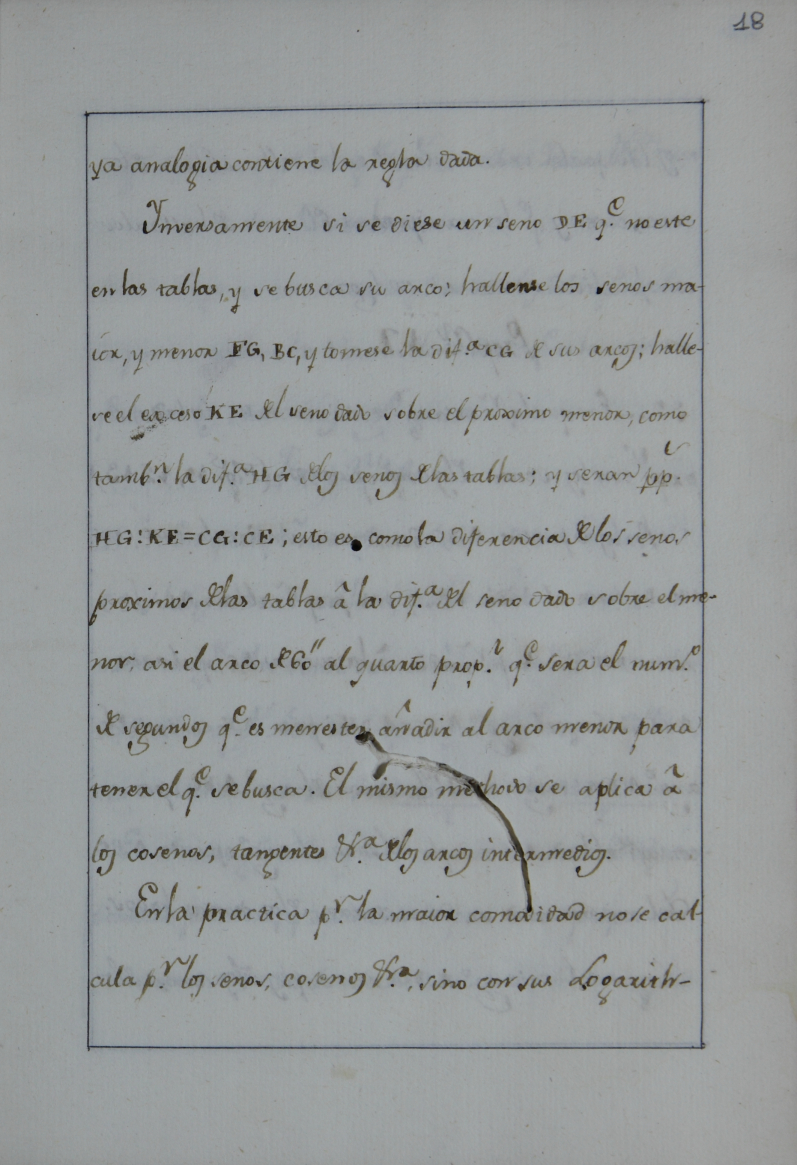 18
ya analogia contiene la regla dada.
Ynversamente si se diese un seno DE q.e no este
en las tablas, y se busca su arco; hallense los senos ma-
ior, y menor FG, BC, y tomese la dif.a CG de sus arcos; halle-
se el exceso KE del seno dado sobre el proximo menor, como
tamb.n la dif.a HG de los senos de las tablas; y seran pp.s
HG:KE=CG:CE; esto es, como la diferencia de los senos
proximos de las tablas â la dif.a del seno dado sobre el me-
nor asi el arco de 60'' al quarto prop.l q.e sera el num.o
de segundos q.e es menester añadir al arco menor para
tener el q.e se busca. El mismo methodo se aplica â
los cosenos, tangentes &.a de los arcos intermedios.
En la practica p.r la maior comodidad no se cal-
cula p.r los senos, cosenos &.a, sino con sus Logarith-